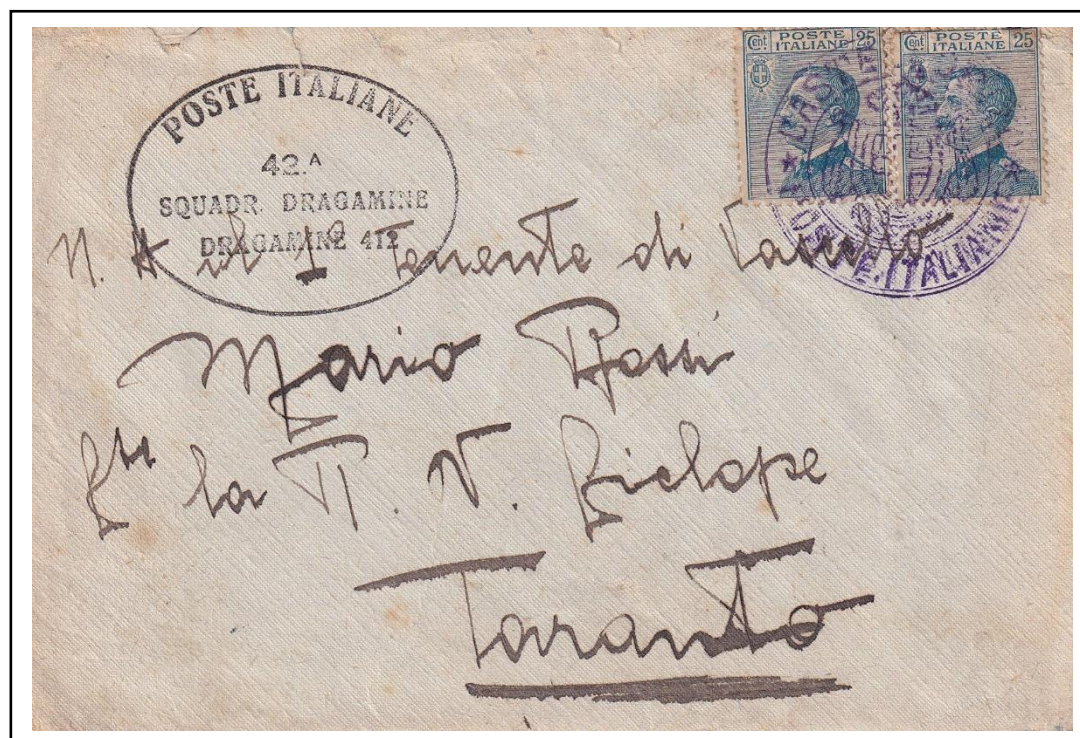 POSTE ITALIANE
42.A
SQUADR. DRAGAMINE
DRAGAMINE 412
Cent POSTE ITALIANE 25
Cent POSTE ITALIANE 25
POSTE ITALIANE
1º Tenente di Vascello
Mario Rossi
la R. N. Ciclope
Taranto